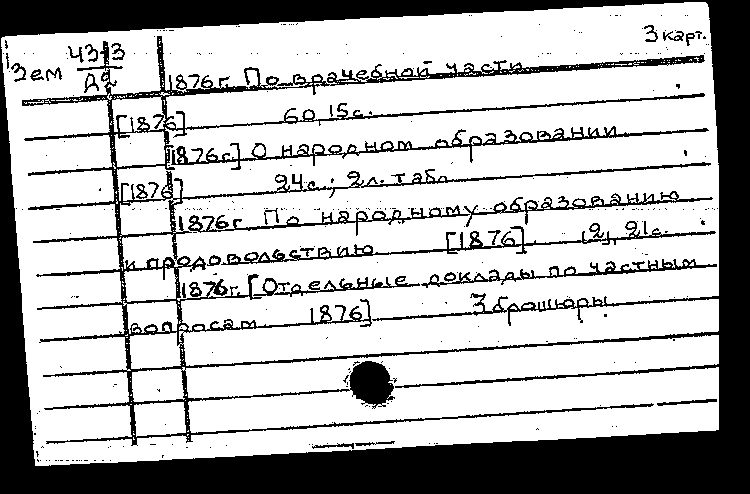 3 карт.
Зем 43-3
Д2
1876 г. По врачебной части
[1876] 60, 15 с.
[1876 г.] О народном образовании
[1876] 24 с.; 2 л. табл.
1876 г. По народному образованию
и продовольствию [1876] , 21 с.
1876 г. [Отдельные доклады по частным
вопросам 1876] 3 брошюры.